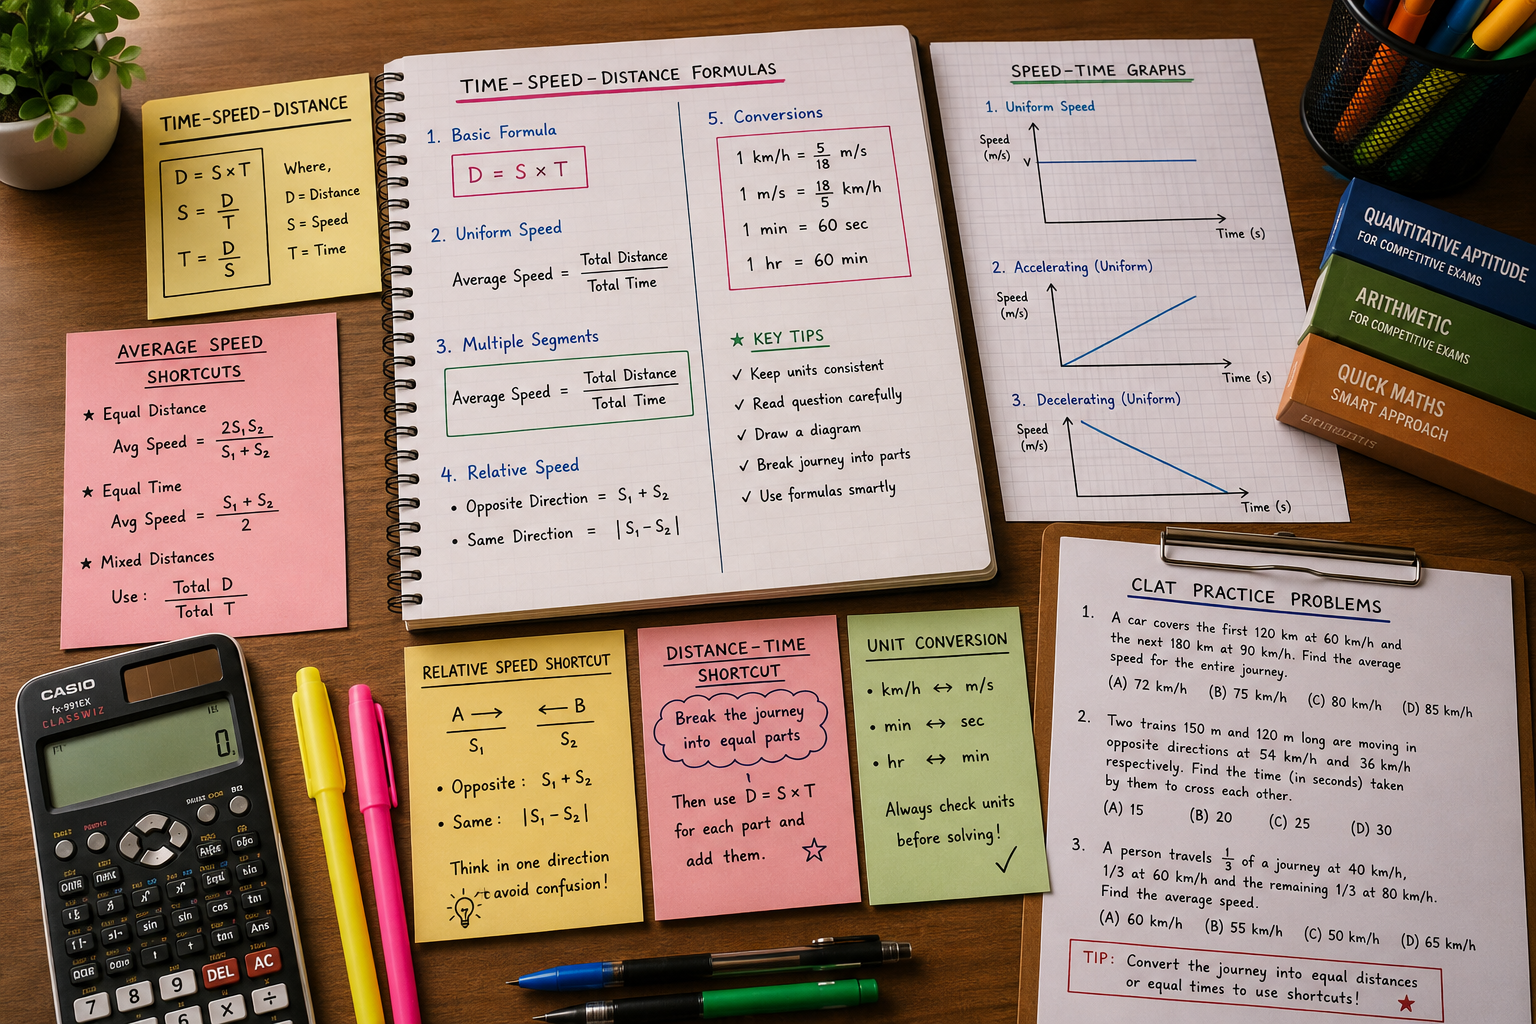 TIME-SPEED-DISTANCE
D = S × T
S = D/T
T = D/S
Where,
D = Distance
S = Speed
T = Time
AVERAGE SPEED
SHORTCUTS
★ Equal Distance
Avg Speed = 2S₁S₂ / S₁ + S₂
★ Equal Time
Avg Speed = S₁ + S₂ / 2
★ Mixed Distances
Use : Total D / Total T
TIME-SPEED-DISTANCE FORMULAS
1. Basic Formula
D = S × T
2. Uniform Speed
Average Speed = Total Distance / Total Time
3. Multiple Segments
Average Speed = Total Distance / Total Time
4. Relative Speed
• Opposite Direction = S₁ + S₂
• Same Direction = |S₁ - S₂|
5. Conversions
1 km/h = 5/18 m/s
1 m/s = 18/5 km/h
1 min = 60 sec
1 hr = 60 min
★ KEY TIPS
✓ Keep units consistent
✓ Read question carefully
✓ Draw a diagram
✓ Break journey into parts
✓ Use formulas smartly
SPEED-TIME GRAPHS
1. Uniform Speed
Speed
(m/s)
V
Time (s)
2. Accelerating (Uniform)
Speed
(m/s)
Time (s)
3. Decelerating (Uniform)
Speed
(m/s)
Time (s)
QUANTITATIVE APTITUDE
FOR COMPETITIVE EXAMS
ARITHMETIC
FOR COMPETITIVE EXAMS
QUICK MATHS
SMART APPROACH
RELATIVE SPEED SHORTCUT
A → ← B
S₁ S₂
• Opposite : S₁ + S₂
• Same : |S₁ - S₂|
Think in one direction
avoid confusion!
DISTANCE-TIME
SHORTCUT
Break the journey
into equal parts
Then use D = S × T
for each part and
add them.
UNIT CONVERSION
• km/h ↔ m/s
• min ↔ sec
• hr ↔ min
Always check units
before solving!
CLAT PRACTICE PROBLEMS
1. A car covers the first 120 km at 60 km/h and
the next 180 km at 90 km/h. Find the average
speed for the entire journey.
(A) 72 km/h (B) 75 km/h (C) 80 km/h (D) 85 km/h
2. Two trains 150 m and 120 m long are moving in
opposite directions at 54 km/h and 36 km/h
respectively. Find the time (in seconds) taken
by them to cross each other.
(A) 15 (B) 20 (C) 25 (D) 30
3. A person travels 1/3 of a journey at 40 km/h,
1/3 at 60 km/h and the remaining 1/3 at 80 km/h.
Find the average speed.
(A) 60 km/h (B) 55 km/h (C) 50 km/h (D) 65 km/h
TIP: Convert the journey into equal distances
or equal times to use shortcuts!
CASIO
fx-991EX
CLASSWIZ
0.
sin cos tan
sin tan Ans
DEL AC
7 8 9 ÷
6 X